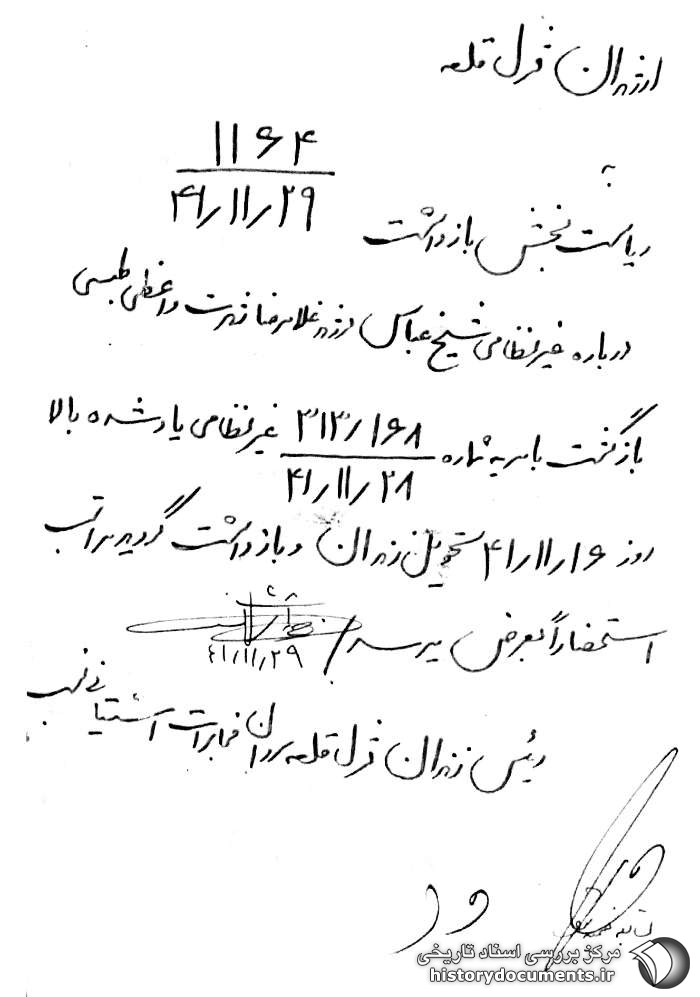 از زندان قزل قلعه
به
۱۱۶۴
ریاست بخش بازداشت ۴۱/۱۱/۲۹
درباره غیرنظامی شیخ عباس فرزند غلامرضا شهرت واعظی طبسی
بازگشت بامریه شماره ۳۱۳/۱۶۸ غیرنظامی یاد شده بالا
۴۱/۱۱/۲۸
روز ۴۱/۱۱/۱۶ تحویل زندان و بازداشت گردید مراتب
استحضاراً بعرض میرسد/
۴۱/۱۱/۲۹
رئیس زندان قزل قلعه سروان مخابرات اشتیانی نسب
مرکز بررسی اسناد تاریخی
historydocuments.ir